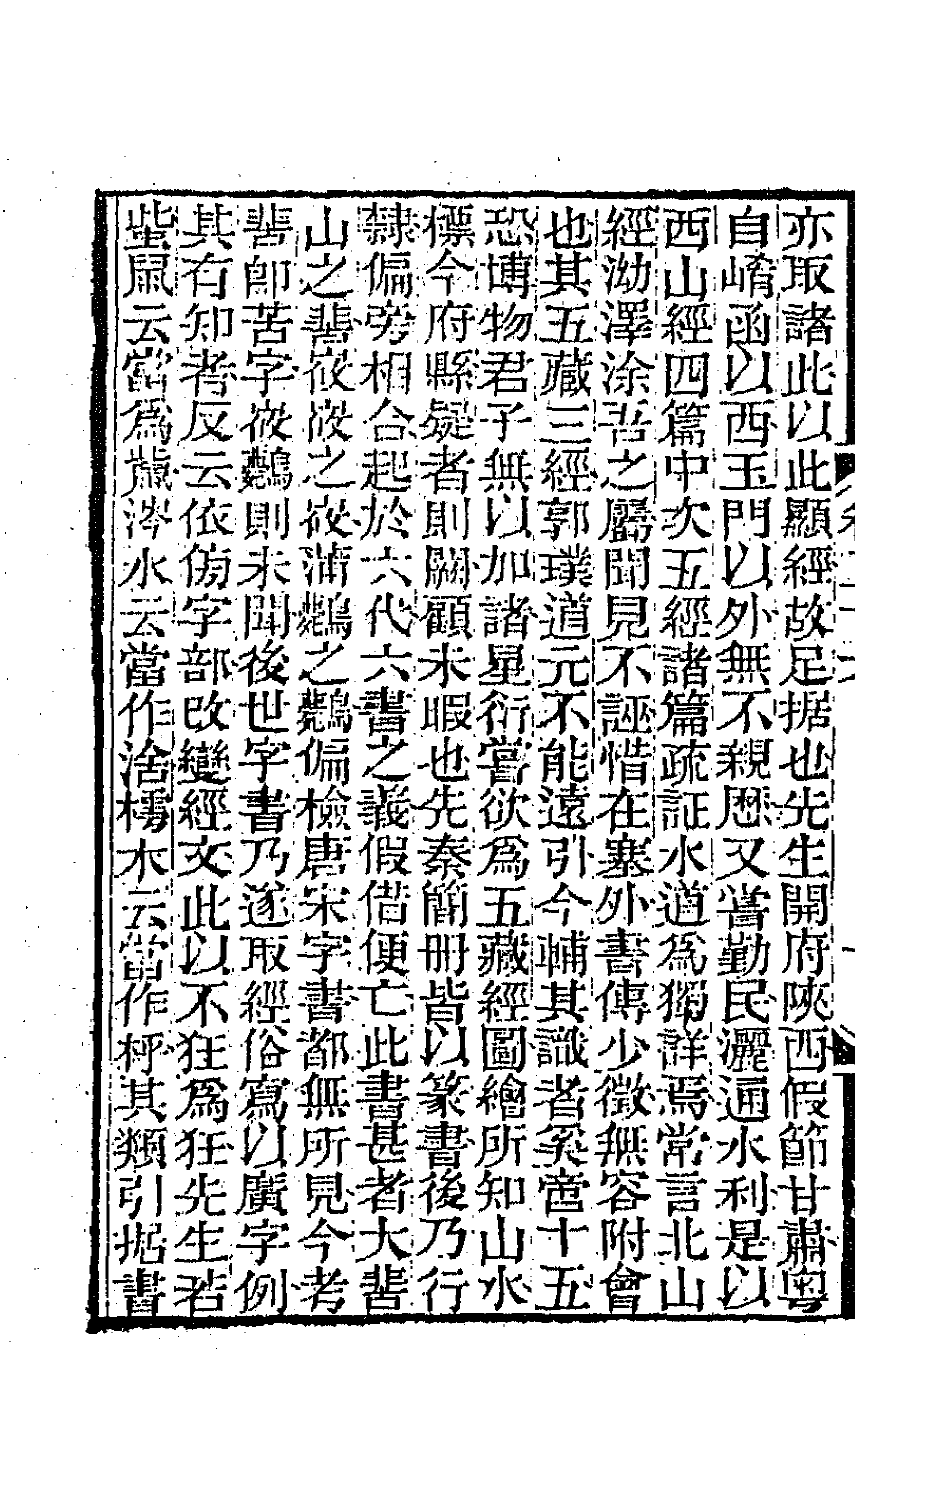 亦取諸此以此顯經故足据也先生開府陝西假節甘肅粤
自崤函以西玉門以外無不親歷又嘗勤民灑通水利是以
西山經四篇中次五經諸篇疏証水道為獨詳焉常言北山
經泑澤涂吾之屬聞見不誣惜在塞外書傳少徵無容附會
也其五藏三經郭璞道元不能遠引今輔其識者奚啻十五
恐博物君子無以加諸星衍嘗欲為五藏經圖繪所知山水
標今府縣疑者則闕顧未暇也先秦簡冊皆以篆書後乃行
隸偏旁相合起於六代六書之義假借便亡此書甚者大𩇯
山之𩇯 之 蒲 之 偏檢唐宋字書都無所見今考
即苦字 則未聞後世字書乃遂取經俗寫以廣字例
其有知者反云依㑂字部改變經文此以不狂為狂先生若
鼠云當為 涔水云當作洛㯉木云當作枰其類引据書